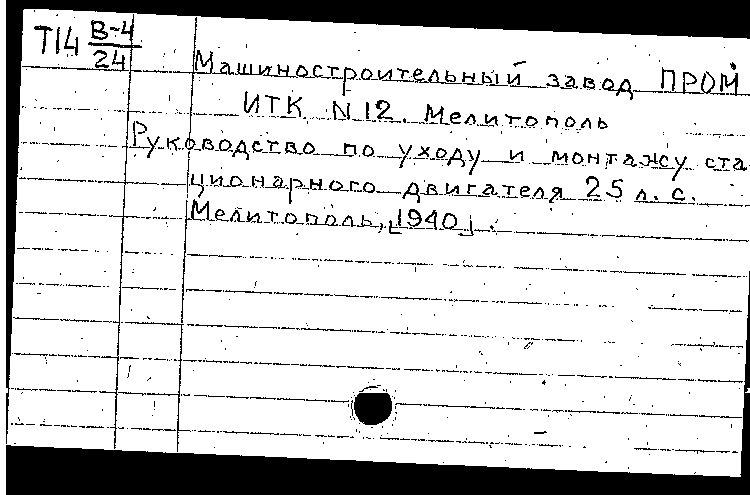 Т14 В-4/24
Машиностроительный завод ПРОМ
ИТК N 12. Мелитополь
Руководство по уходу и монтажу ста
ционарного двигателя 25 л. с.
Мелитополь, [1940].